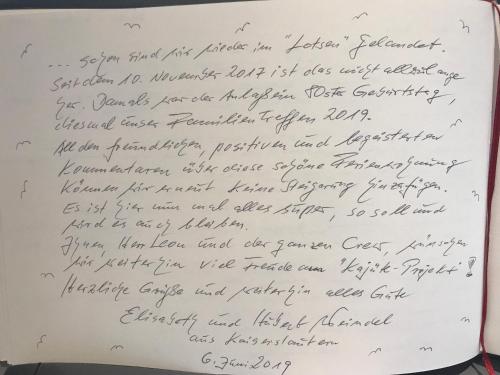 ... schon sind wir wieder im "Lotsen" gelandet.
Seit dem 10. November 2017 ist das nicht allzu lange
her. Damals war der Anlaß ein 80ster Geburtstag,
diesmal unser Familientreffen 2019.
All den freundlichen, positiven und begeisterten
Kommentaren über diese schöne Ferienwohnung
können wir erneut keine Steigerung hinzufügen.
Es ist hier nun mal alles super, so soll und
wird es auch bleiben.
Ihnen, Herr Leon und der ganzen Crew, wünschen
wir weiterhin viel Freude am "Kajüt-Projekt"!
Herzliche Grüße und weiterhin alles Gute
Elisabeth und Hubert
aus Kaiserslautern
6. Juni 2019